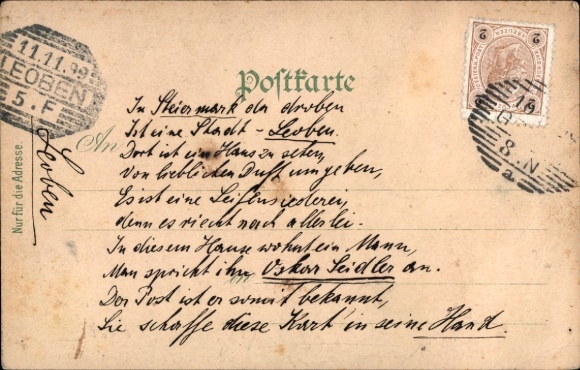 11.11.99
LEOBEN
5.F
Postkarte
2 2
An
In Steiermark da droben
Ist eine Stadt – Leoben.
Dort ist ein Haus zu sehen,
Von lieblichen Duft umgeben,
Es ist eine Seifensiederei,
denn es riecht nach allerlei.
In diesem Hause wohnt ein Mann,
Man spricht ihn Oskar Seidler an.
Der Post ist er somit bekannt,
Sie schaffe diese Kart in seine Hand.
Nur für die Adresse.
Leoben
8.N
a